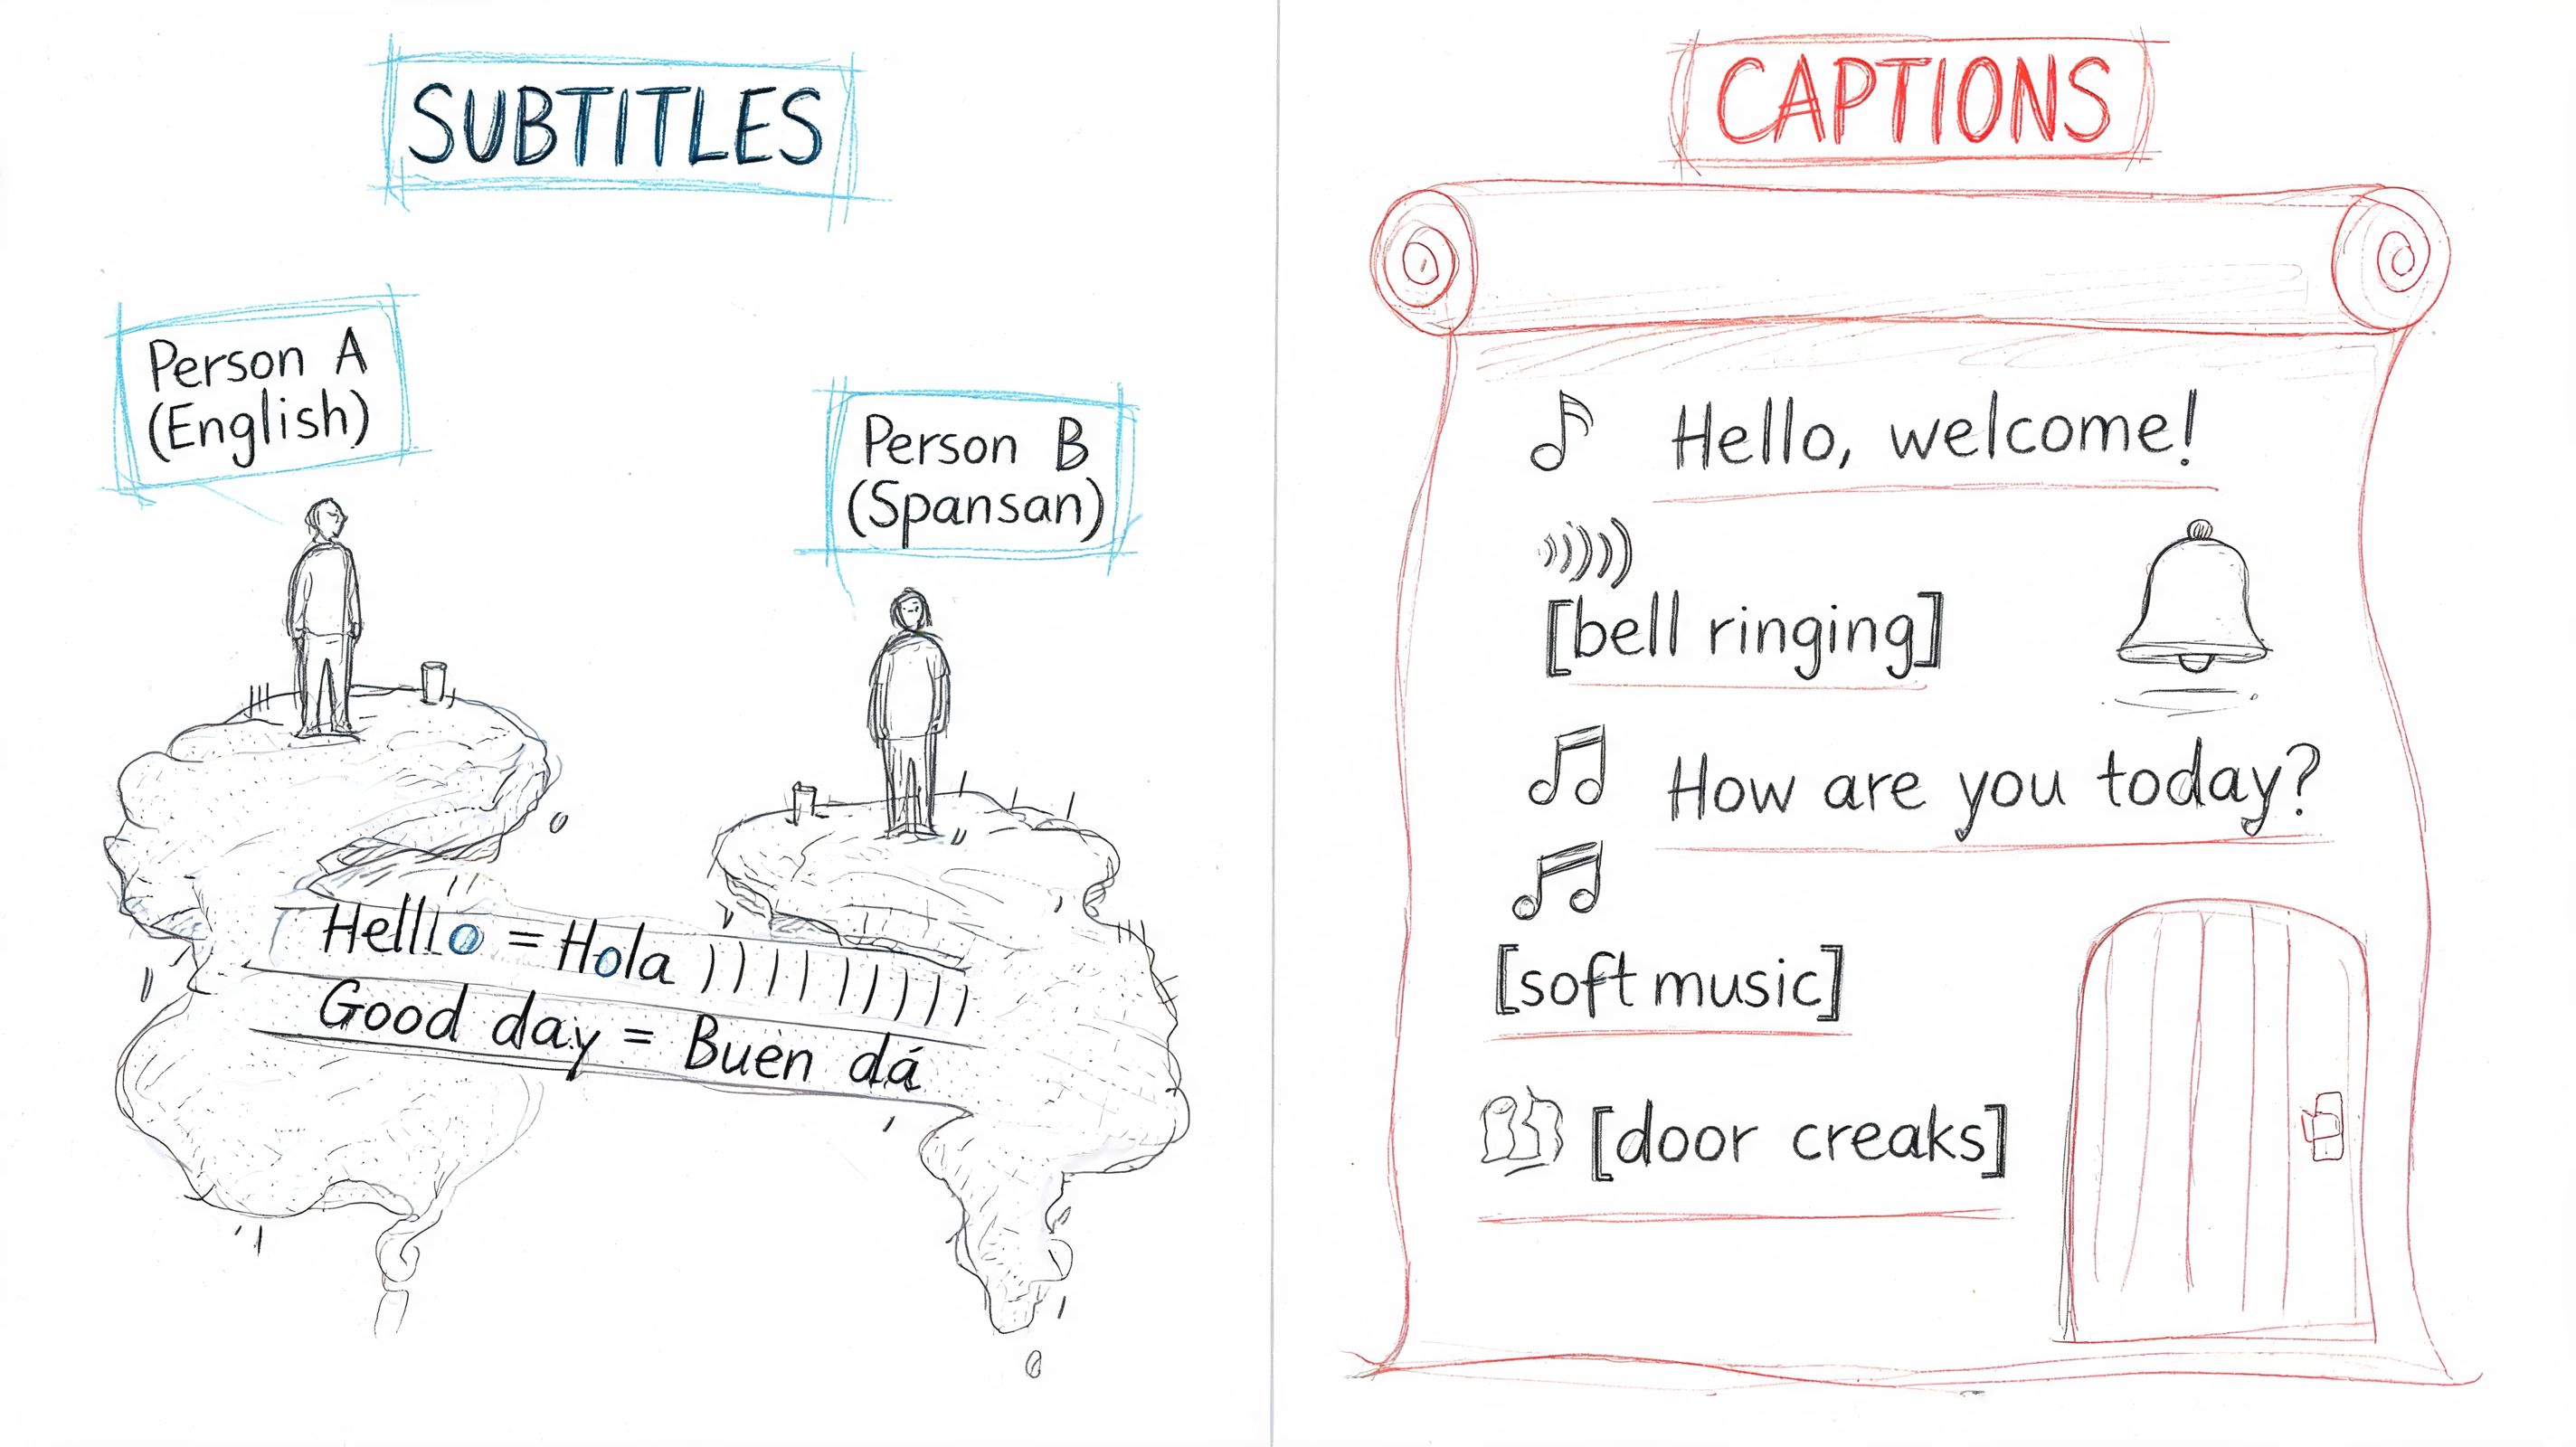 SUBTITLES
Person A
(English)
Person B
(Spansan)
Helllo = Hola
Good day = Buen dá
CAPTIONS
Hello, welcome!
[bell ringing]
How are you today?
[soft music]
[door creaks]